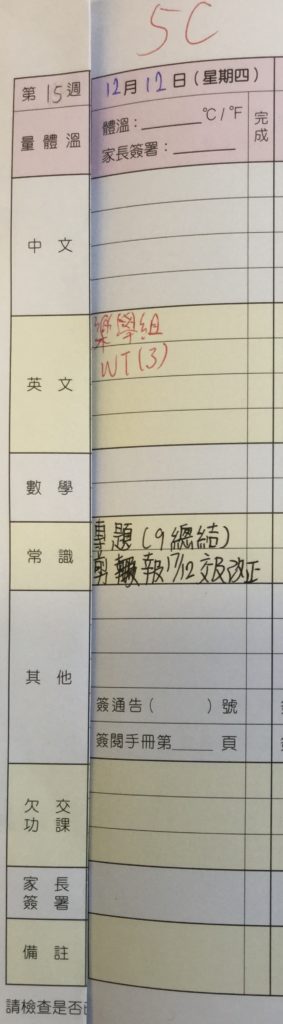 5C
第15週 12月12日(星期四)
量體溫 體溫:______°C/°F 完成
家長簽署:______
中文
樂學組
英文 WT(3)
數學
專題(9總結)
常識 剪報17/12交及改正
其他
簽通告( )號
簽閱手冊第____頁
欠交
功課
家長
簽署
備註
請檢查是否